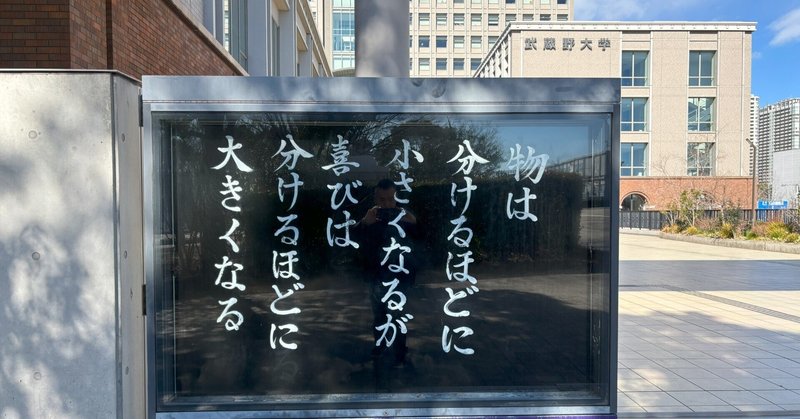 武蔵野大学
物は
分けるほどに
小さくなるが
喜びは
分けるほどに
大きくなる